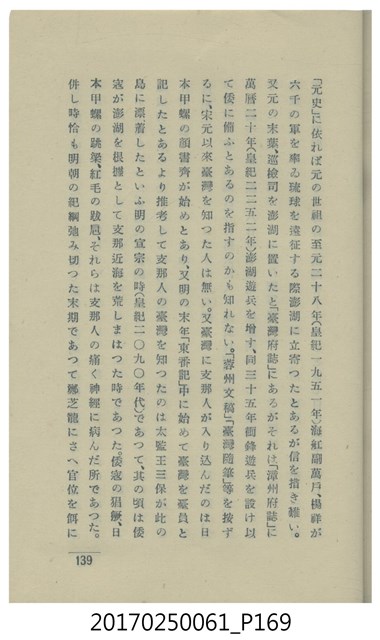 「元史」に依れば元の世祖の至元二十八年(皇紀一九五一年)海舡副萬戸、楊祥が
六千の軍を率ゐ琉球を遠征する際澎湖に立寄つたとあるが信を措き難い。
又元の末葉、巡檢司を澎湖に置いたと「臺灣府誌」にあるがそれは「漳州府誌」に
萬曆二十年(皇紀二二五二年)澎湖遊兵を增す、同三十五年衝鋒遊兵を設け以
て倭に備ふとあるのを指すのかも知れない。「蓉州文稿」「臺灣隨筆」等を按ず
るに、宋元以來臺灣を知つた人は無い。又臺灣に支那人が入り込んだのは日
本甲螺の顏書齊が始めとあり、又明の末年「東番記」中に始めて臺灣を臺員と
記したとあるより推考して支那人の臺灣を知つたのは太監王三保が此の
島に漂着したといふ明の宣宗の時(皇紀二〇九〇年代)であつて、其の頃は倭
寇が澎湖を根據として支那近海を荒しまはつた時であつた。倭寇の猖獗、日
本甲螺の跳梁、紅毛の跋扈、それらは支那人の痛く神經に病んだ所であつた。
併し時恰も明朝の紀綱弛み切つた末期であつて鄭芝龍にさへ官位を餌に
139
20170250061_P169